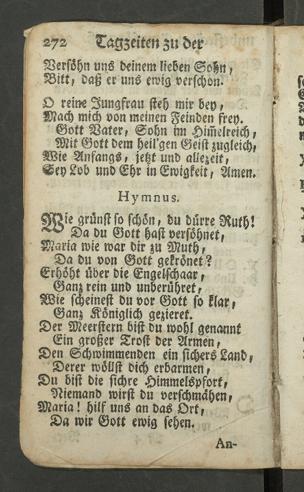 272 Tagzeiten zu der
Versöhn uns deinem lieben Sohn,
Bitt, daß er uns ewig verschon.
O reine Jungfrau steh mir bey,
Mach mich von meinen Feinden frey.
Gott Vater, Sohn im Him̃elreich,
Mit Gott dem heil'gen Geist zugleich,
Wie Anfangs, jetzt und allezeit,
Sey Lob und Ehr in Ewigkeit, Amen.
Hymnus.
Wie grünst so schön, du dürre Ruth!
Da du Gott hast versöhnet,
Maria wie war dir zu Muth,
Da du von Gott gekrönet?
Erhöht über die Engelschaar,
Ganz rein und unberühret,
Wie scheinest du vor Gott so klar,
Ganz Königlich gezieret.
Der Meerstern bist du wohl genannt
Ein großer Trost der Armen,
Den Schwimmenden ein sichers Land,
Derer wöllst dich erbarmen,
Du bist die sichre Himmelspfort,
Niemand wirst du verschmähen,
Maria! hilf uns an das Ort,
Da wir Gott ewig sehen.
An-